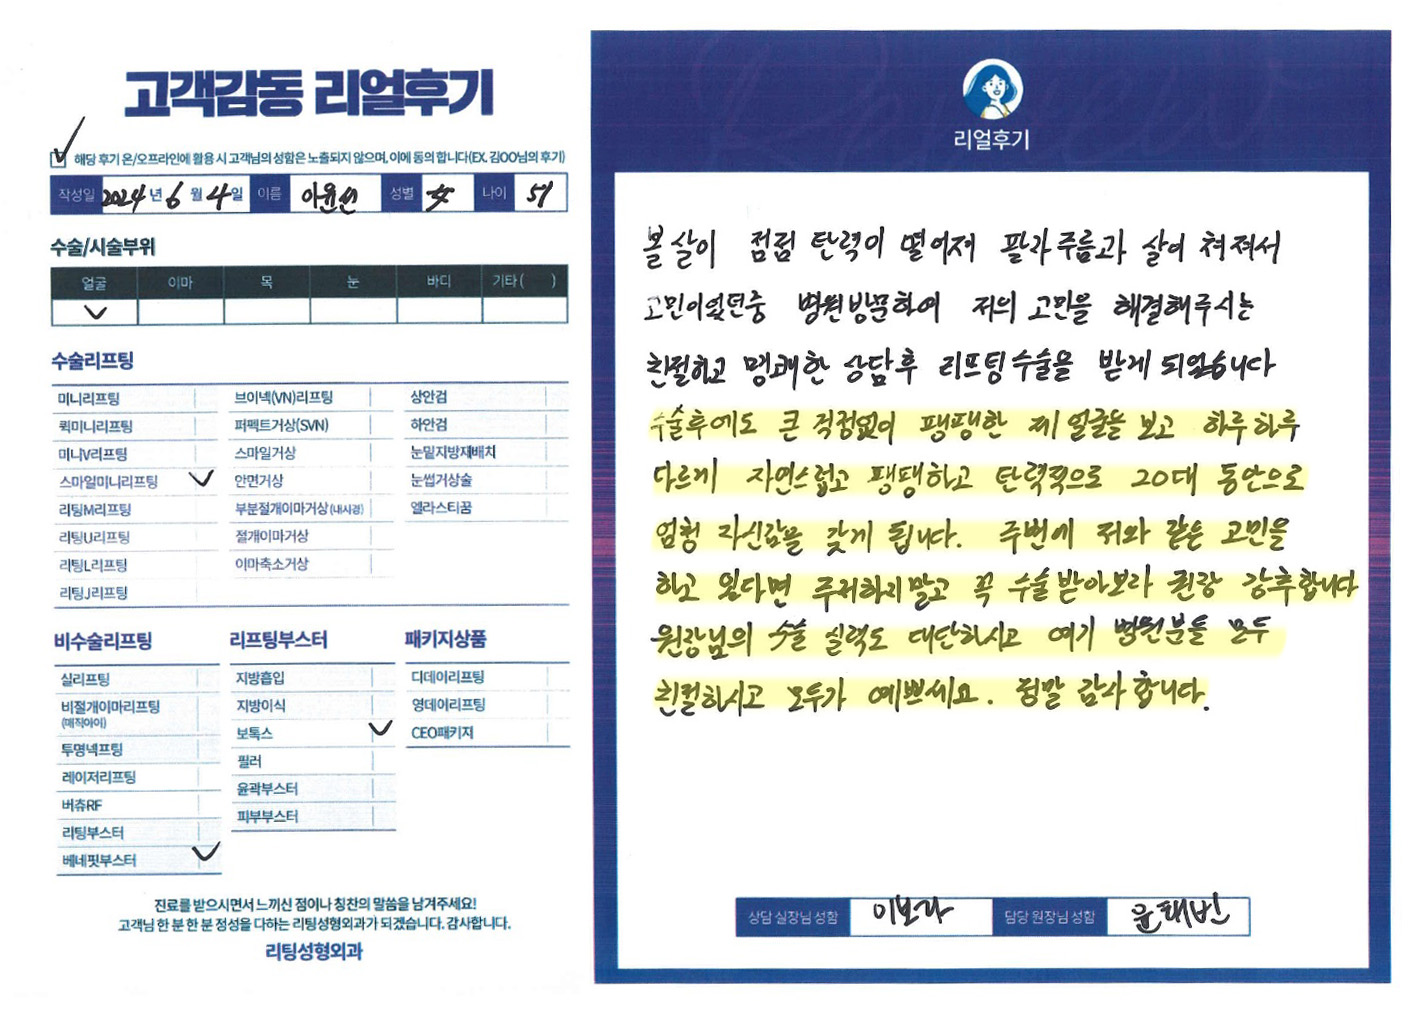 고객감동 리얼후기
해당 후기 온/오프라인에 활용 시 고객님의 성함은 노출되지 않으며, 이에 동의 합니다(EX. 김OO님의 후기)
작성일 2024년 6월 4일 이름 이윤선 성별 女 나이 51
수술/시술부위
얼굴 이마 목 눈 바디 기타( )
수술리프팅
미니리프팅
퀵미니리프팅
미니V리프팅
스마일미니리프팅
리팅M리프팅
리팅U리프팅
리팅L리프팅
리팅J리프팅
브이넥(VN)리프팅
퍼펙트거상(SVN)
스마일거상
안면거상
부분절개이마거상(내시경)
절개이마거상
이마축소거상
상안검
하안검
눈밑지방재배치
눈썹거상술
엘라스티꿈
비수술리프팅
실리프팅
비절개이마리프팅
(매직아이)
투명넥프팅
레이저리프팅
버츄RF
리팅부스터
베네핏부스터
리프팅부스터
지방흡입
지방이식
보톡스
필러
윤곽부스터
피부부스터
패키지상품
디데이리프팅
영데이리프팅
CEO패키지
진료를 받으시면서 느끼신 점이나 칭찬의 말씀을 남겨주세요!
고객님 한 분 한 분 정성을 다하는 리팅성형외과가 되겠습니다. 감사합니다.
리팅성형외과
리얼후기
볼살이 점점 탄력이 떨어져 팔자주름과 살이 쳐져서
고민이있던중 병원방문하여 저의 고민을 해결해주시는
친절하고 명쾌한 상담후 리프팅수술을 받게 되었습니다
수술후에도 큰 걱정없이 팽팽한 제 얼굴을 보고 하루하루
다르게 자연스럽고 팽팽하고 탄력적으로 20대 동안으로
엄청 자신감을 갖게 됩니다. 주변에 저와 같은 고민을
하고 있다면 주저하지말고 꼭 수술받아보라 권장 강추합니다
원장님의 수술 실력도 대단하시고 여기 병원분들 모두
친절하시고 모두가 예쁘세요. 정말 감사합니다.
상담 실장님 성함 이보라 담당 원장님 성함 윤태빈